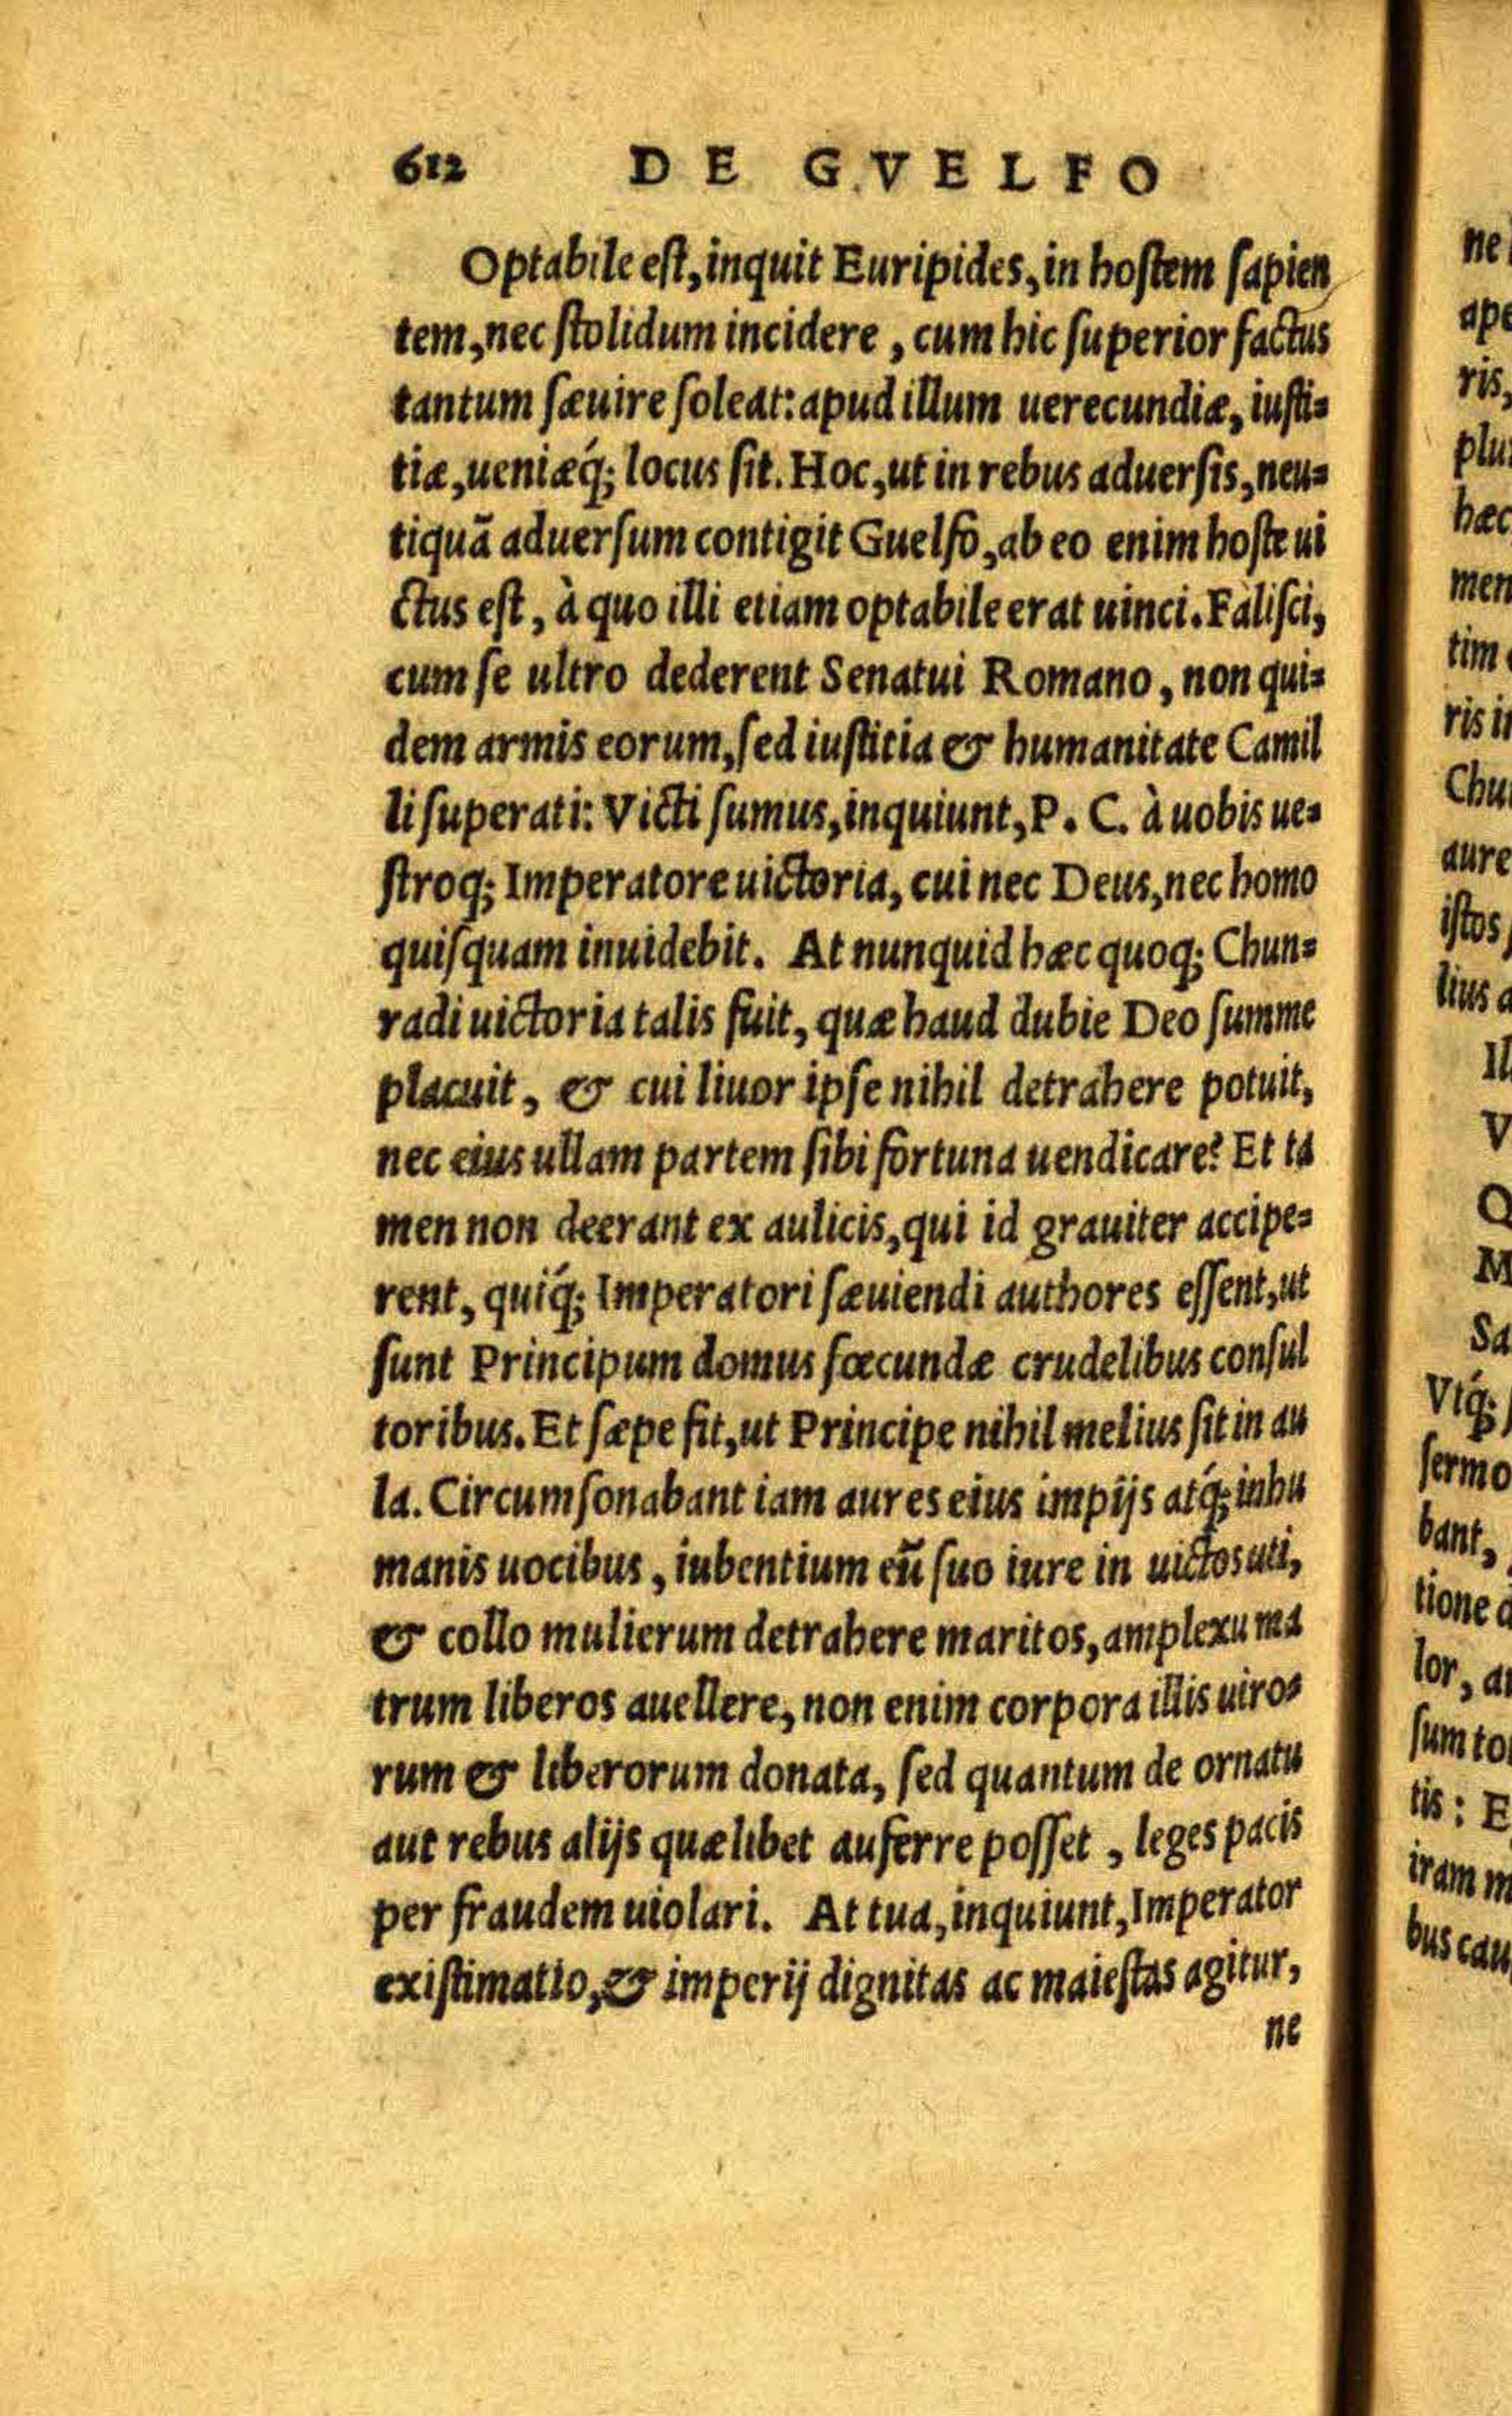 612 DE GVELFO
Optabile est, inquit Euripides, in hostem sapien
tem, nec stolidum incidere, cum hic superior factus
tantum sæuire soleat: apud illum uerecundiæ, iusti-
tiæ, ueniæq́; locus sit. Hoc, ut in rebus aduersis, neu-
tiquã aduersum contigit Guelfo, ab eo enim hoste ui
ctus est, à quo illi etiam optabile erat uinci. Falisci,
cum se ultro dederent Senatui Romano, non qui-
dem armis eorum, sed iusticia & humanitate Camil
li superati: Victi sumus, inquiunt, P. C. à uobis ue-
stroq; Imperatore uictoria, cui nec Deus, nec homo
quisquam inuidebit. At nunquid hæc quoq; Chun-
radi uictoria talis fuit, quæ haud dubie Deo summe
placuit, & cui liuor ipse nihil detrahere potuit,
nec eius ullam partem sibi fortuna uendicare? Et ta
men non deerant ex aulicis, qui id grauiter accipe-
rent, quiq́; Imperatori sæuiendi authores essent, ut
sunt Principum domus fœcundæ crudelibus consul
toribus. Et sæpe fit, ut Principe nihil melius sit in au
la. Circumsonabant iam aures eius impijs atq́; inhu
manis uocibus, iubentium eũ suo iure in uictos uti,
& collo mulierum detrahere maritos, amplexu ma
trum liberos auellere, non enim corpora illis uiro-
rum & liberorum donata, sed quantum de ornatu
aut rebus alijs quælibet auferre posset, leges pacis
per fraudem uiolari. At tua, inquiunt, Imperator
existimatio, & imperij dignitas ac maiestas agitur,
ne